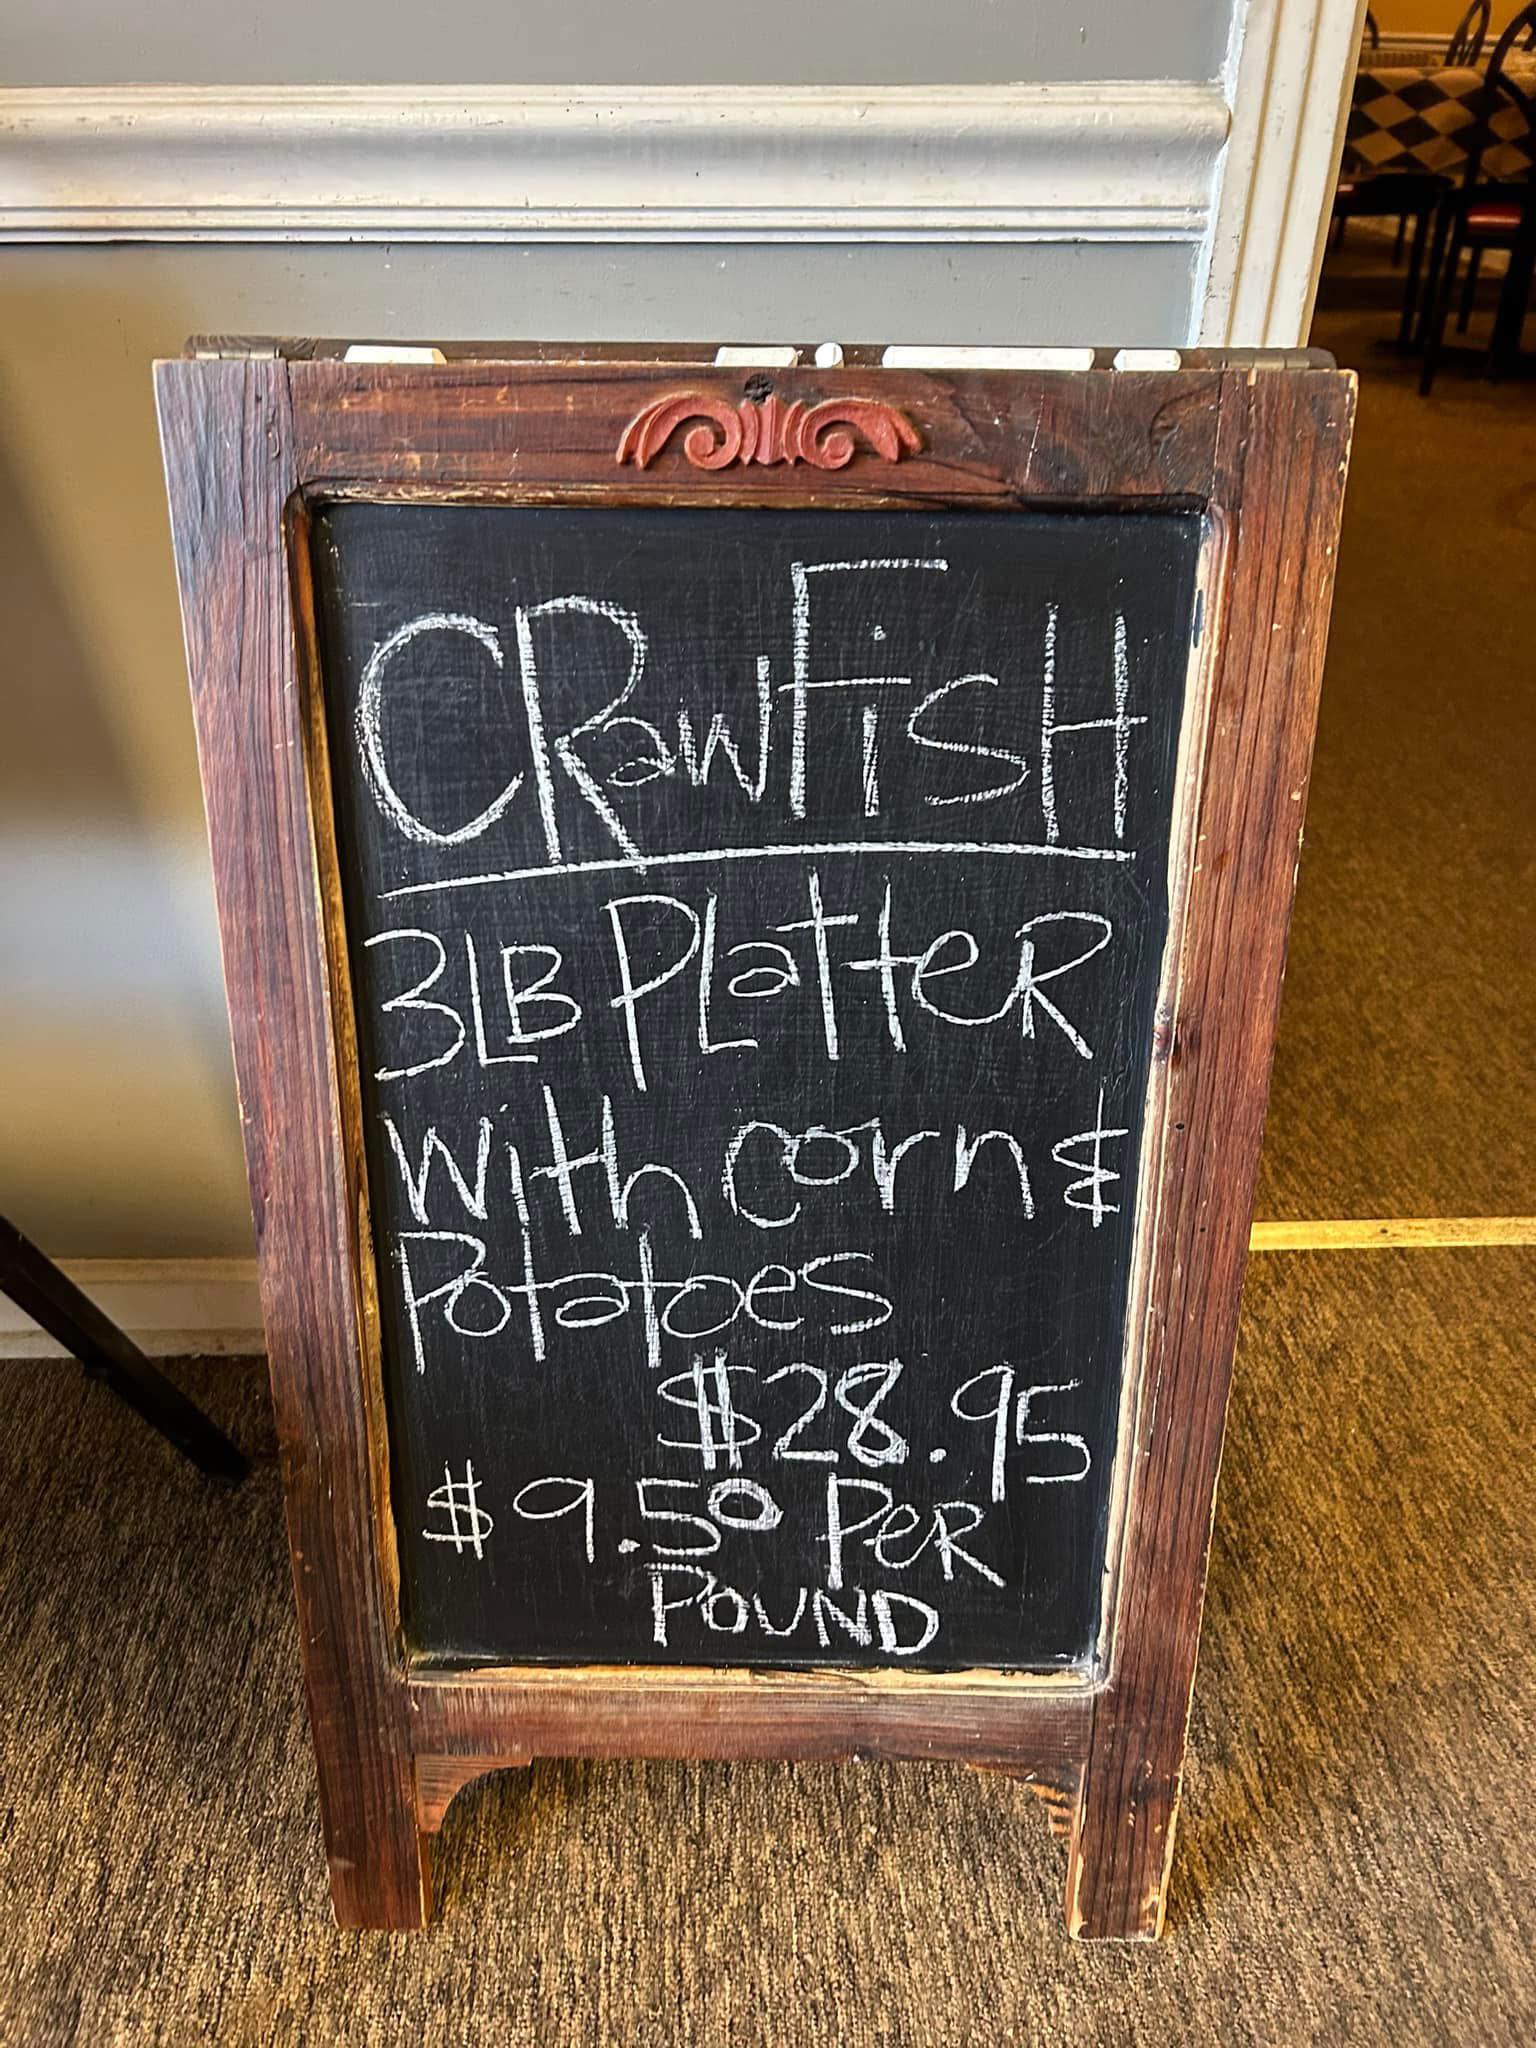 CRawFisH
3LB PLatteR
with corn &
Potatoes
$28.95
$9.50 PeR
POUND